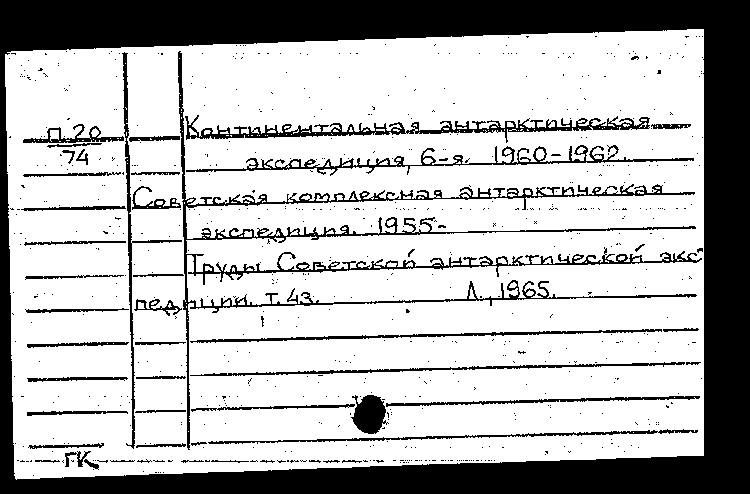 П 20
74
Континентальная антарктическая
экспедиция, 6-я. 1960-1962.
Советская комплексная антарктическая
экспедиция. 1955-
Труды Советской антарктической экс-
педиции. Т. 43. Л., 1965.
ГК